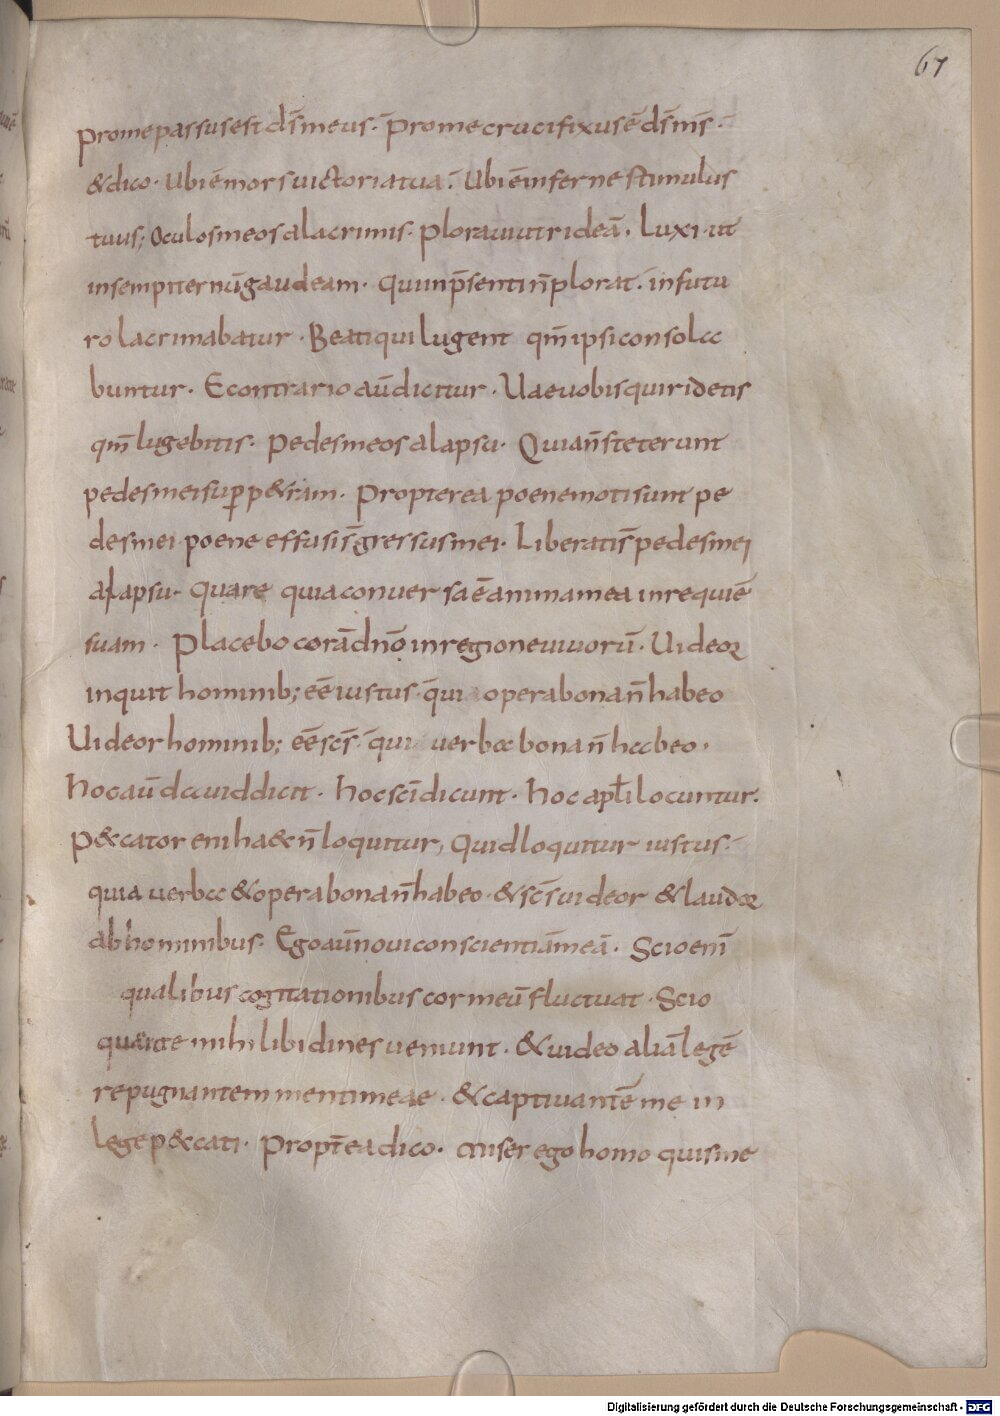 67
pro me passus est dn̄s meus. Pro me crucifixus ē dn̄s m̄s.
& dico. Ubi ē mors uictoria tua. Ubi ē inferne stimulus
tuus; Oculos meos a lacrimis. ploraui ut rideā. Luxi ut
in sempiternū gaudeam. Qui in p̄senti n̄ plorat. in futu
ro lacrimabatur. Beati qui lugent qm̄ ipsi consola
buntur. E contrario aūdicitur. Uae uobis qui ridetis
qm̄ lugebitis. Pedes meos a lapsu. Quia n̄ steterunt
pedes mei sup p&ram. Propterea poene moti sunt pe
des mei poene effusi s̄ gressus mei. Liberati s̄ pedes mei
a lapsu. Quare quia conuersa ē anima mea in requiē
suam. Placebo corā dn̄o in regione uiuorū. Uideor
inquit hominib; eē iustus. qui opera bona n̄ habeo
Uideor hominib; eē scs̄. qui uerba bona n̄ habeo.
hoc aū dauid dicit. hoc sc̄i dicunt. hoc apl̄i locuntur.
P&cator eni haec n̄ loquitur, Quid loquitur iustus.
quia uerba & opera bona n̄ habeo. & scs̄ uideor & laudor
ab hominibus. Ego aū noui conscientiā meā. Scio eni̅
qualibus cogitationibus cor meū fluctuat. Scio
quante mihi libidines ueniunt. & uideo aliā legē
repugnantem menti meae. & captiuantē me in
lege p&cati. Propt̄ea dico. Miser ego homo quis me
Digitalisierung gefördert durch die Deutsche Forschungsgemeinschaft - DFG